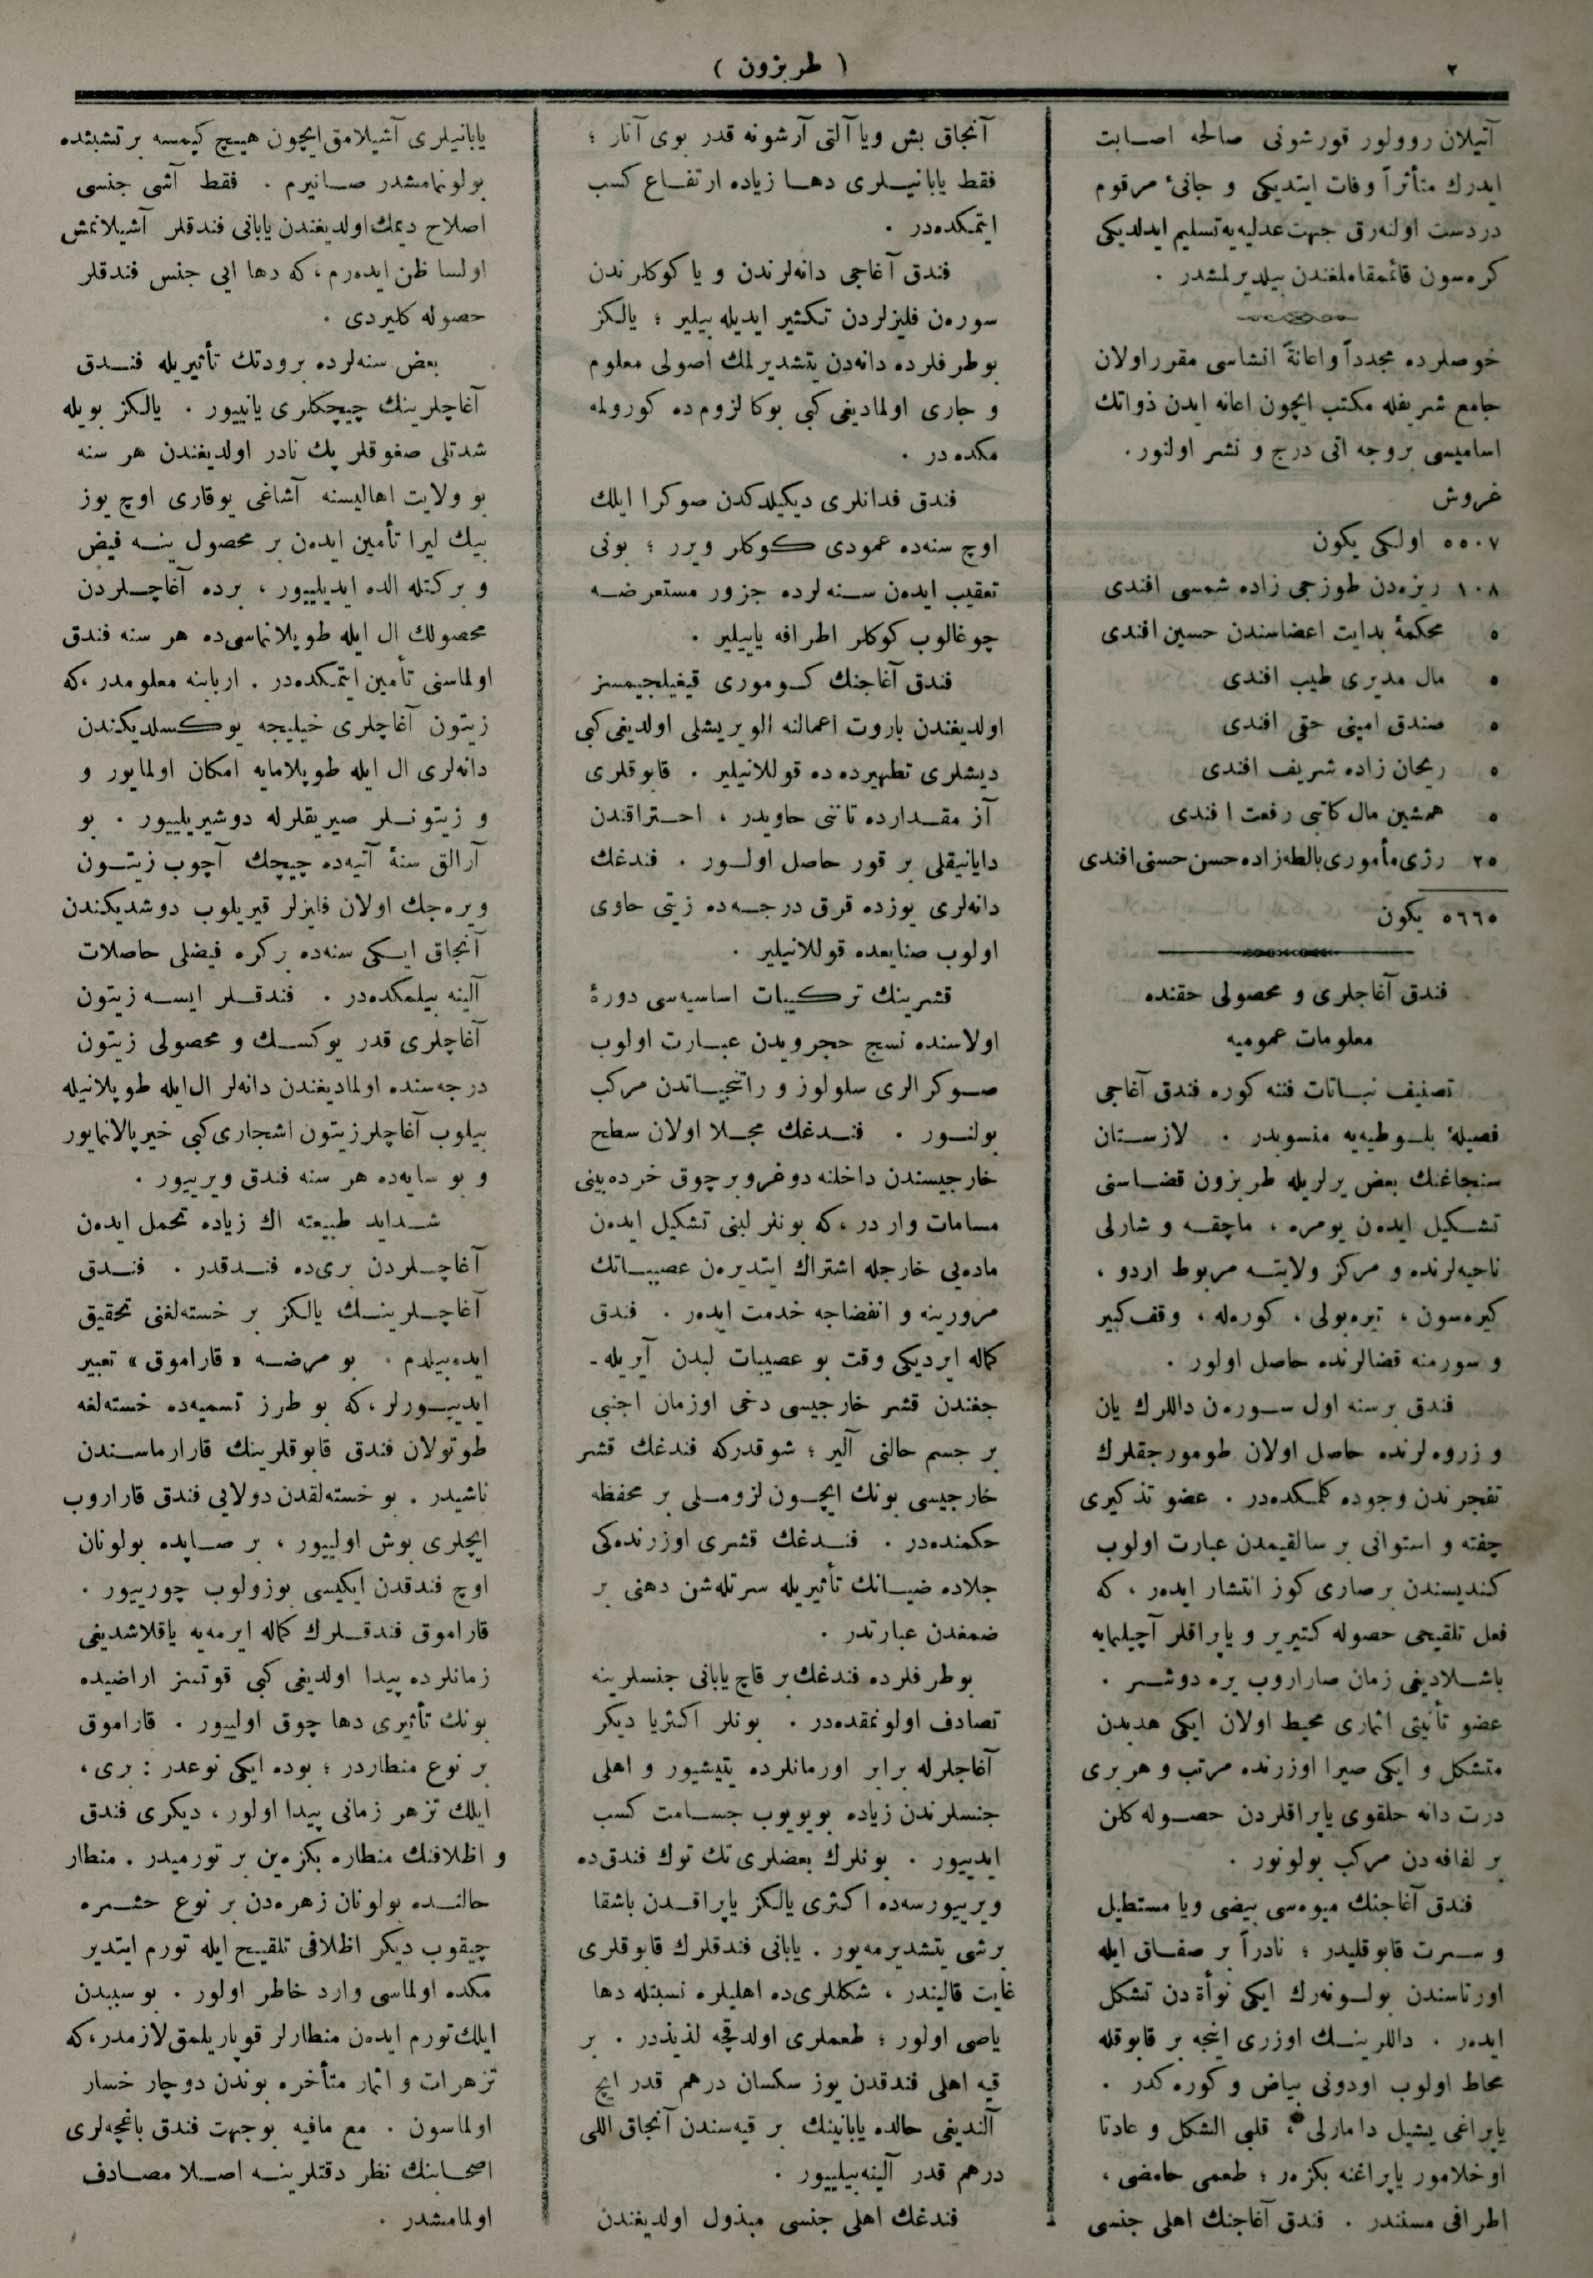 ٢
( طربزون )
آتیلان روولور قورشونی صالحه اصـابت
ایدرك متأثراً وفات ایتدیکی و جانیٔ مرقوم
دردست اولنه‌رق جهت عدلیه‌یه تسلیم ایدلدیکی
کره‌سون قائمقاملغندن بیلدیرلمشدر ۰
خوصلرده مجدداً واعانةً انشاسی مقرر اولان
جامع شریفله مکتب ایچون اعانه ایدن ذواتك
اسامیسی بروجه آتی درج و نشر اولنور.
غروش
٥٥٠٧ اولکی یکون
١٠٨ ریزه‌دن طوزجی زاده شمسی افندی
٥ محکمۀ بدایت اعضاسندن حسین افندی
٥ مال مدیری طیب افندی
٥ صندق امینی حقی افندی
٥ ریحان زاده شریف افندی
٥ همشین مال کاتبی رفعت افندی
٢٥ رژی مأموری بالطه زاده حسن حسنی افندی
٥٦٦٥ یکون
فندق آغاجلری و محصولی حقنده
معلومات عمومیه
تصنیف نبـاتات فننه کوره فندق آغاجی
فصیلۀ بلـوطیه‌یه منسوبدر ۰ لازسـتان
سنجاغنك بعض یرلریله طربزون قضـاسنی
تشـکیل ایده‌ن یومره ، ماچقـه و شارلی
ناحیه‌لرنده و مرکز ولایتـه مربوط اردو ،
کیره‌سون ، تیره‌بولی ، کوره‌له ، وقف‌کبیر
و سورمنه قضالرنده حاصل اولور ۰
فندق برسنه اول سـوره‌ن داللرك یان
و زروه‌لرنده حاصل اولان طومورجقلرك
تفجرندن وجوده کلمکده‌در ۰ عضو تذکیری
چفته و استوانی بر سالقیمدن عبارت اولوب
کندیسندن بر صاری کوز انتشار ایده‌ر ، که
فعل تلقیحی حصوله کتیریر و یاپراقلر آچیلمایه
باشـلادیغی زمان صاراروب یره دوشـر ۰
عضو تأنیثی اثماری محیط اولان ایکی هدبدن
متشکل و ایکی صیرا اوزرنده مرتب و هر بری
درت دانه حلقوی یاپراقلردن حصـوله کلن
بر لفافه‌دن مرکب بولونور ۰
فندق آغاجنك میوه‌سی بیضی ویا مستطیل
و سـرت قابوقلیدر ؛ نادراً بر صفـاق ایله
اورتاسندن بولـونه‌رك ایکی نوأة دن تشکل
ایده‌ر ۰ داللرینـك اوزری اینجه بر قابوقله
محاط اولوب اودونی بیاض و کوره‌کدر ۰
یاپراغی یشیل دامارلی ، قلبی الشکل و عادتا
اوخلامور یاپراغنه بکزه‌ر ؛ طعمی حامضی ،
اطرافی مسنندر ۰ فندق آغاجنك اهلی جنسی
آنجاق بش ویا آلتی آرشونه قدر بوی آتار ؛
فقط یابانیـلری دهـا زیاده ارتفـاع کسب
ایتمکده‌در ۰
فندق آغاجی دانه‌لرندن و یا کوکلرندن
سوره‌ن فلیزلردن تکثیر ایدیله بیلیر ؛ یالکز
بو طرفلرده دانه‌دن یتشدیرلمك اصولی معلوم
و جاری اولمادیغی کبی بوکا لزوم‌ده کورولمه
مکده‌در ۰
فندق فدانلری دیکیلدکدن صوکرا ایلك
اوچ سنه‌ده عمودی کوکلر ویرر ؛ بونی
تعقیب ایده‌ن سـنه‌لرده جزور مستعرضـه
چوغالوب کوکلر اطرافه یاییلیر ۰
فندق آغاجنك کـوموری قیغیلجیمسز
اولدیغندن باروت اعمالنه الویریشلی اولدیغی‌کبی
دیشلری تطهیرده ده قوللانیلیر ۰ قابوقلری
آز مقـدارده تاننی حاویدر ، احـتراقندن
دایانیقلی بر قور حاصل اولـور ۰ فندغك
دانه‌لری یوزده قرق درجـه‌ده زیتی حاوی
اولوب صنایعده قوللانیلیر ۰
قشرینك ترکیبات اساسیه‌سی دورۀ
اولاسنده نسج حجرویدن عبـارت اولوب
صـوکرالری سلولوز و راتنجیـاتدن مرکب
بولنـور ۰ فنـدغك مجـلا اولان سطح
خارجیسندن داخلنه دوغرو بر چوق خرده‌بینی
مسامات واردر ، که بونلر لبنی تشکیل ایده‌ن
ماده‌یی خارجله اشتراك ایتدیره‌ن عصیبـاتك
مرورینه و انفضاجه خدمت ایده‌ر ۰ فندق
کماله ایردیکی وقت بو عصیبات لبدن آیریله-
جغندن قشر خارجیسی دخی اوزمان اجنبی
بر جسم حالنی آلیر ؛ شو قدرکه فندغك قشر
خارجیسی بونك ایچـون لزومـلی بر محفظه
حکمنده‌در ۰ فنـدغك قشری اوزرنده‌کی
جلاده ضیـانك تأثیریله سرتله‌شن دهنی بر
ضمغدن عبارتدر ۰
بو طرفلرده فندغك بر قاچ یابانی جنسلرینه
تصادف اولونمقده‌در ۰ بونلر اکثریا دیکر
آغاجلرله برابر اورمانلرده یتیشیور و اهلی
جنسلرندن زیاده بویویوب جسـامت کسب
ایدییور ۰ بونلرك بعضلری تك توك فندق‌ده
ویرییورسه‌ده اکثری یالکز یاپراقـدن باشقا
برشی یتشدیرمه‌یور ۰ یابانی فندقلرك قابوقلری
غایت قالیندر ، شکللری‌ده اهلیلره نسبتله دها
یاصی اولور ؛ طعملری اولدقجه لذیذدر ۰ بر
قیه اهلی فندقدن یوز سکسان درهم قدر ایچ
آلندیغی حالده یابانینك بر قیه‌سندن آنجاق اللی
درهم قدر آلینه‌بیلییور ۰
فندغك اهلی جنسی مبذول اولدیغندن
یابانیلری آشیلامق ایچون هیـچ کیمسه بر تشبثده
بولونمامشدر صـانیرم ۰ فقط آشی جنسی
اصلاح دیمك اولدیغندن یابانی فندقلر آشیلانمش
اولسا ظن ایده‌رم ، که دها ایی جنس فندقلر
حصوله کلیردی ۰
بعض سنه‌لرده برودتك تأثیریله فنـدق
آغاچلرینك چیچکلری یانییور ۰ یالکز بویله
شدتلی صغوقلر پك نادر اولدیغندن هر سنه
بو ولایت اهالیسنه آشاغی یوقاری اوچ یوز
بیك لیرا تأمین ایده‌ن بر محصول ینـه فیض
و برکتله الده ایدیلییور ، برده آغاچـلردن
محصولك ال ایله طوپلانماسی‌ده هر سنه فندق
اولماسنی تأمین ایتمکده‌در ۰ اربابنه معلومدر ، که
زیتون آغاچلری خیلیجه یوکسلدیکندن
دانه‌لری ال ایله طوپلامایه امکان اولمایور و
و زیتونـلر صیریقلرله دوشیریلییور ۰ بو
آرالق سنۀ آتیه‌ده چیچك آچوب زیتـون
ویره‌جك اولان فلیزلر قیریلوب دوشدیکندن
آنجاق ایـکی سنه‌ده برکره فیضلی حاصلات
آلینه بیلمکده‌در ۰ فندقـلر ایسـه زیتون
آغاچلری قدر یوکسـك و محصولی زیتون
درجه‌سنده اولمادیغندن دانه‌لر ال‌ایله طوپلانیله
بیلوب آغاچلر زیتون اشجاری‌کبی خیرپالانمایور
و بو سایه‌ده هر سنه فندق ویرییور ۰
شـداید طبیعته اك زیاده تحمل ایده‌ن
آغاچـلردن بری‌ده فنـدقدر ۰ فنـدق
آغاچـلرینـك یالکز بر خسته‌لغنی تحقیق
ایده‌بیلدم ۰ بو مرضـه « قاراموق » تعبیر
ایدییـورلر ، که بو طرز تسمیه‌ده خسته‌لغه
طوتولان فندق قابوقلرینك قارارماسـندن
ناشیدر ۰ بو خسته‌لقدن دولایی فندق قاراروب
ایچلری بوش اولییور ، بر صـاپده بولونان
اوچ فندقدن ایکیسی بوزولوب چورییور ۰
قاراموق فندقـلرك کماله ایرمه‌یه یاقلاشدیغی
زمانلرده پیدا اولدیغی کبی قوتسز اراضیده
بونك تأثیری دها چوق اولییور ۰ قاراموق
بر نوع منطاردر ؛ بوده ایکی نوعدر : بری ،
ایلك تزهر زمانی پیدا اولور ، دیکری فندق
و اظلافنك منطاره بکزه‌ین بر تورمیدر ۰ منطار
حالنـده بولونان زهره‌دن بر نوع حشـره
چیقوب دیکر اظلافی تلقیـح ایله تورم ایتدیر
مکده اولماسی وارد خاطر اولور ۰ بو سببدن
ایلك تورم ایده‌ن منطارلر قوپاریلمق لازمدر ، که
تزهرات و اثمار متأخره بوندن دوچار خسار
اولماسون ۰ مع مافیه بو جهت فندق باغچه‌لری
اصحـابنك نظر دقتلرینـه اصـلا مصـادف
اولمامشدر ۰